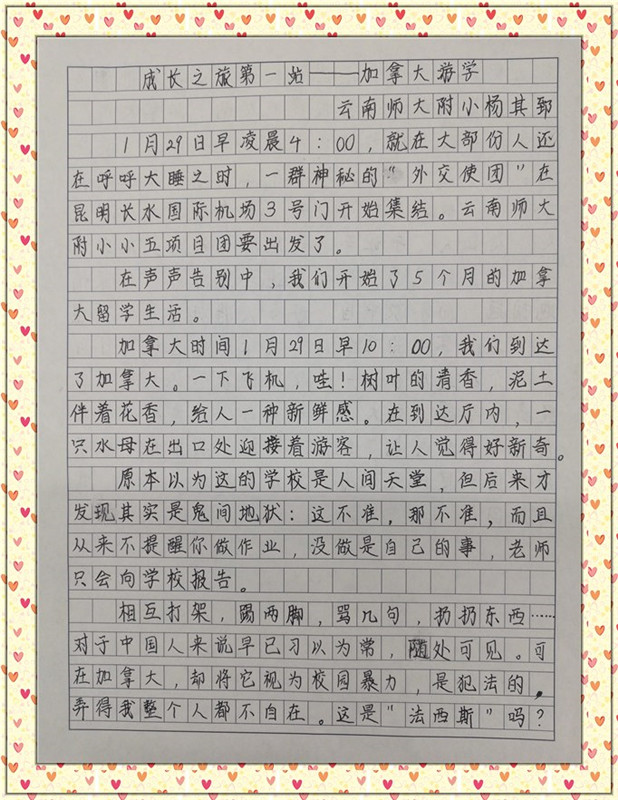 成长之旅第一站——加拿大游学
云南师大附小杨其郅
1月29日早凌晨4：00，就在大部份人还
在呼呼大睡之时，一群神秘的"外交使团"在
昆明长水国际机场3号门开始集结。云南师大
附小小五项目团要出发了。
在声声告别中，我们开始了5个月的加拿
大留学生活。
加拿大时间1月29日早10：00，我们到达
了加拿大。一下飞机，哇！树叶的清香，泥土
伴着花香，给人一种新鲜感。在到达厅内，一
只水母在出口处迎接着游客，让人觉得好新奇。
原本以为这的学校是人间天堂，但后来才
发现其实是鬼间地狱：这不准，那不准，而且
从来不提醒你做作业，没做是自己的事，老师
只会向学校报告。
相互打架，踢两脚，骂几句，扔扔东西……
对于中国人来说早已习以为常，随处可见。可
在加拿大，却将它视为校园暴力，是犯法的，
弄得我整个人都不自在。这是"法西斯"吗？